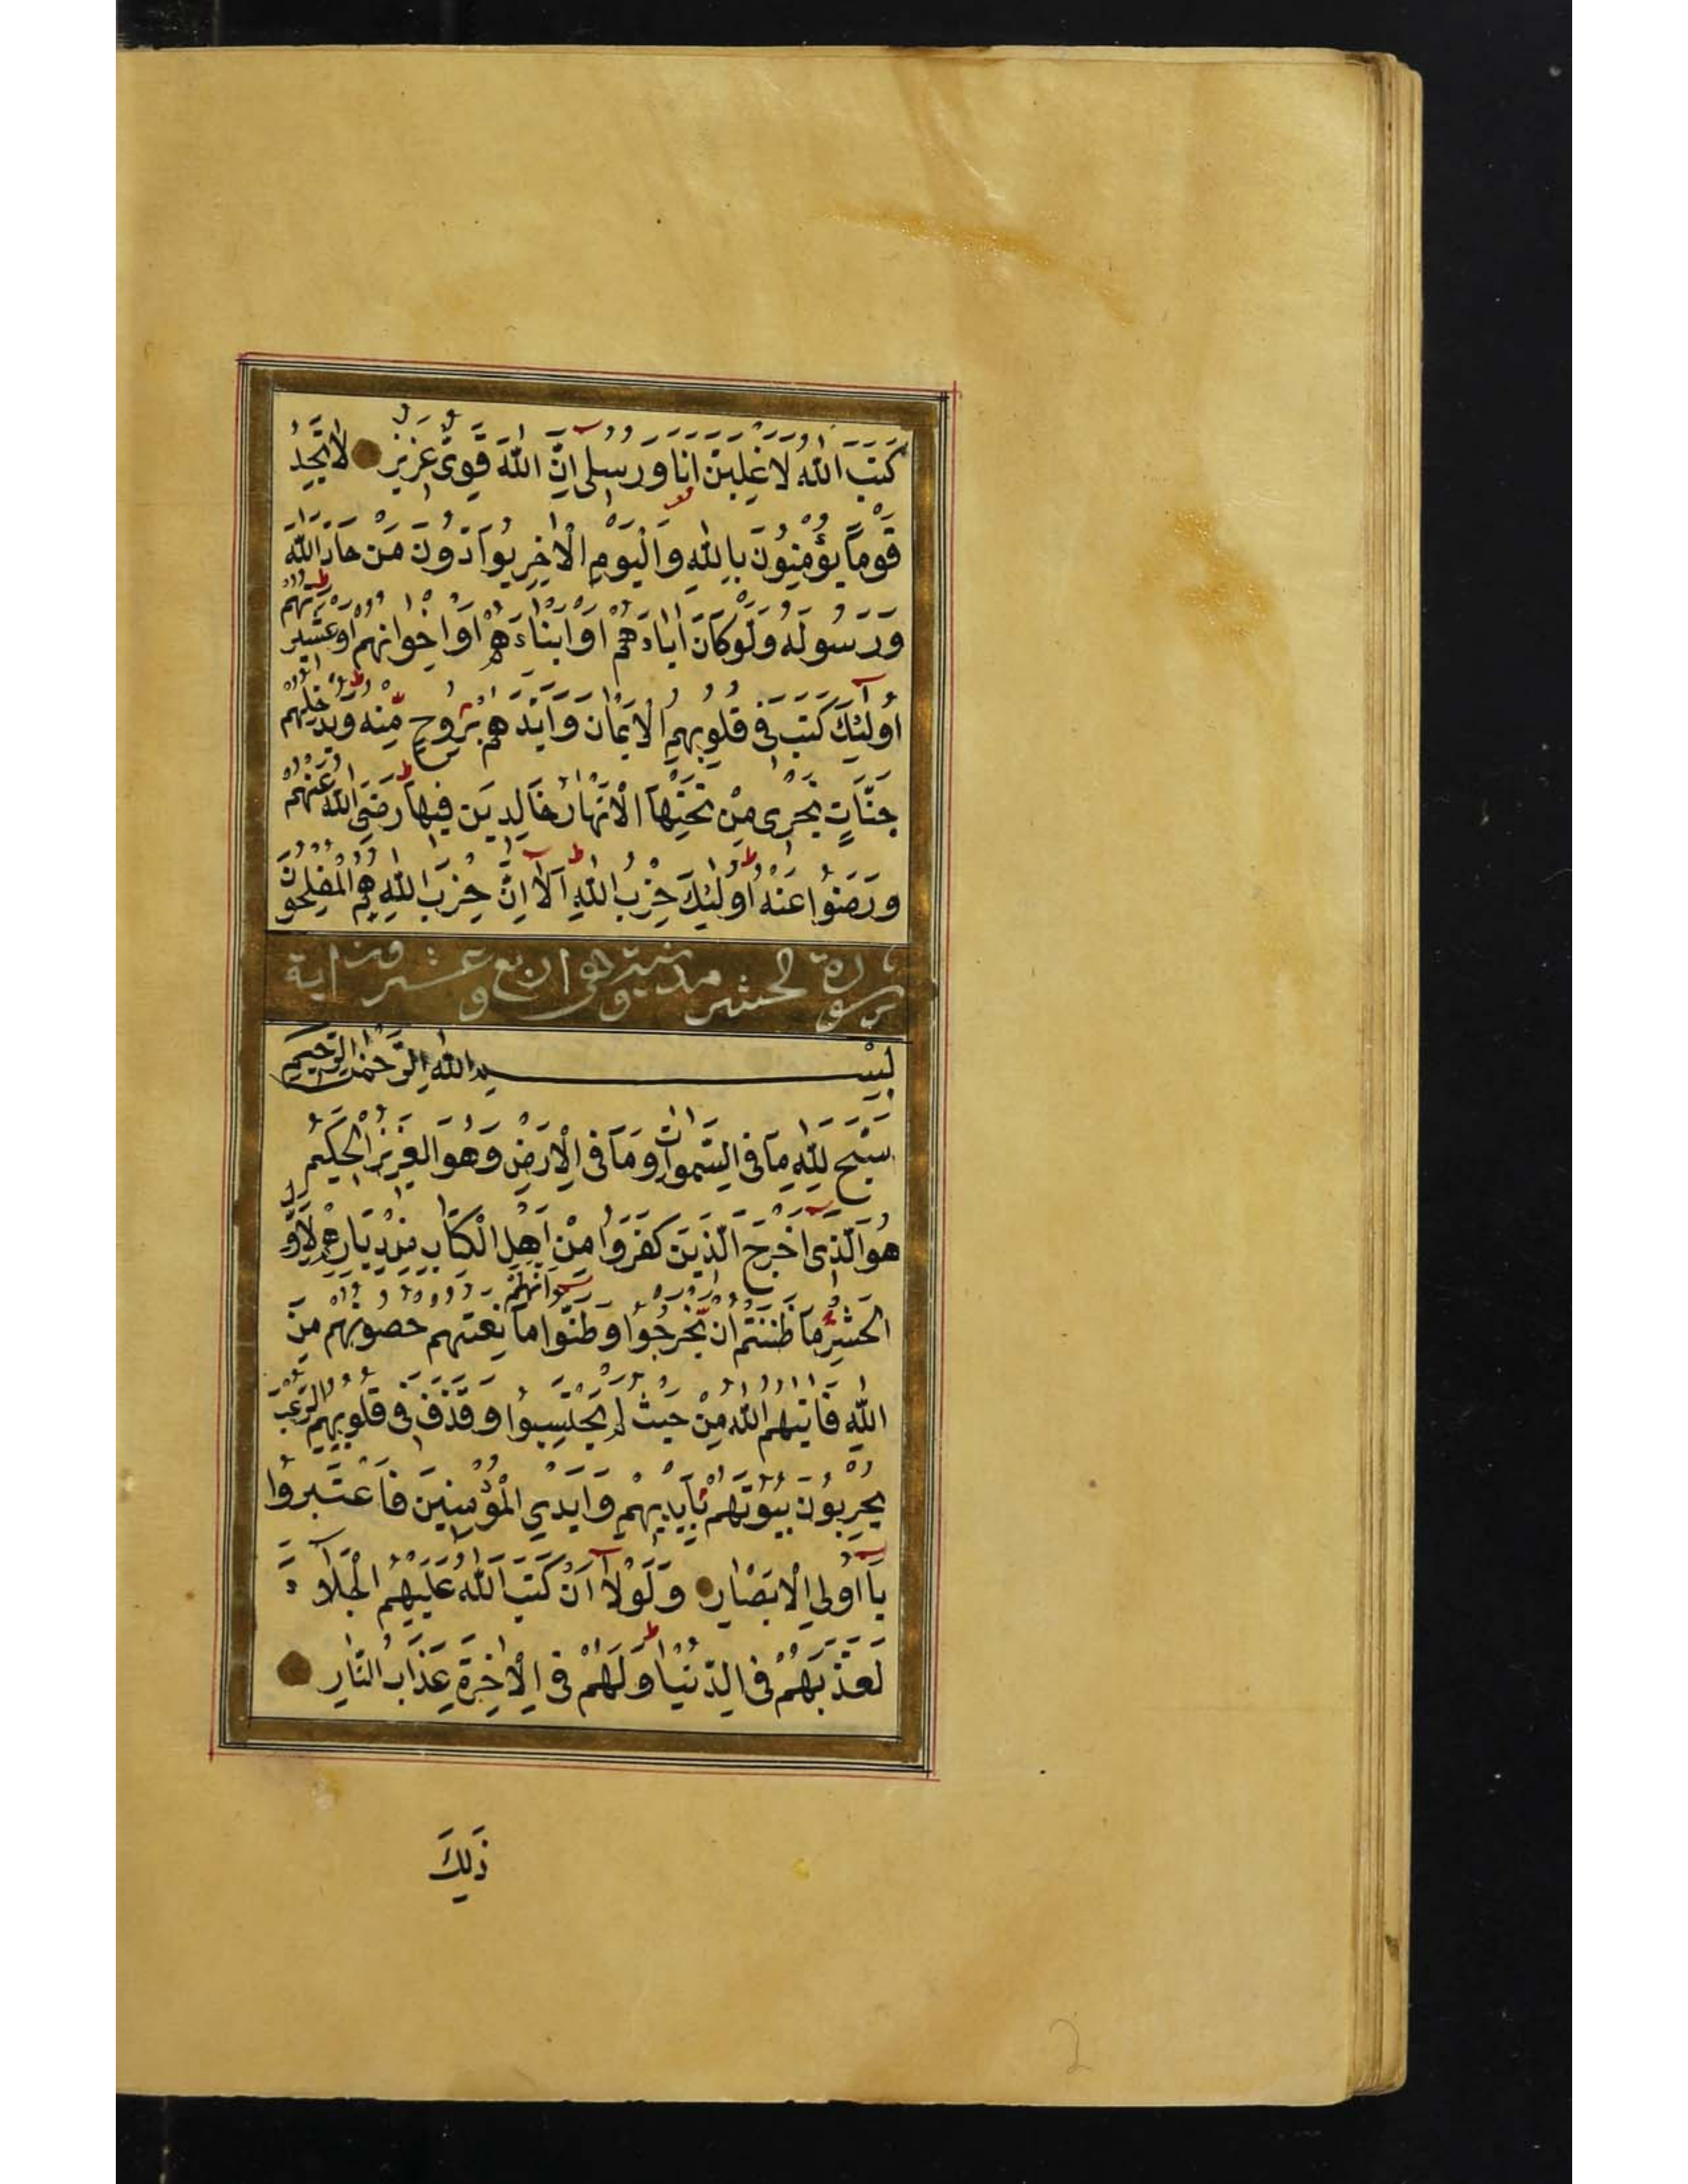 كَتَبَ اللّٰهُ لَاَغْلِبَنَّ اَنَا وَرُسُلِى اِنَّ اللّٰهَ قَوِىٌّ عَزِيزٌ لَا تَجِدُ
قَوْمًا يُؤْمِنُونَ بِاللّٰهِ وَالْيَوْمِ الْاٰخِرِ يُوَادُّونَ مَنْ حَادَّ اللّٰهَ
وَرَسُولَهُ وَلَوْ كَانُوا اٰبَاءَهُمْ اَوْ اَبْنَاءَهُمْ اَوْ اِخْوَانَهُمْ اَوْ عَشِيرَتَهُمْ
اُولٰئِكَ كَتَبَ فِى قُلُوبِهِمُ الْاِيمَانَ وَاَيَّدَهُمْ بِرُوحٍ مِنْهُ وَيُدْخِلُهُمْ
جَنَّاتٍ تَجْرِى مِنْ تَحْتِهَا الْاَنْهَارُ خَالِدِينَ فِيهَا رَضِىَ اللّٰهُ عَنْهُمْ
وَرَضُوا عَنْهُ اُولٰئِكَ حِزْبُ اللّٰهِ اَلَا اِنَّ حِزْبَ اللّٰهِ هُمُ الْمُفْلِحُونَ
سورة الحشر مدنية وهى اربع وعشرون اية
بِسْمِ اللّٰهِ الرَّحْمٰنِ الرَّحِيمِ
سَبَّحَ لِلّٰهِ مَا فِى السَّمٰوَاتِ وَمَا فِى الْاَرْضِ وَهُوَ الْعَزِيزُ الْحَكِيمُ
هُوَ الَّذِى اَخْرَجَ الَّذِينَ كَفَرُوا مِنْ اَهْلِ الْكِتَابِ مِنْ دِيَارِهِمْ لِاَوَّلِ
الْحَشْرِ مَا ظَنَنْتُمْ اَنْ يَخْرُجُوا وَظَنُّوا اَنَّهُمْ مَانِعَتُهُمْ حُصُونُهُمْ مِنَ
اللّٰهِ فَاَتٰيهُمُ اللّٰهُ مِنْ حَيْثُ لَمْ يَحْتَسِبُوا وَقَذَفَ فِى قُلُوبِهِمُ الرُّعْبَ
يُخْرِبُونَ بُيُوتَهُمْ بِاَيْدِيهِمْ وَاَيْدِي الْمُؤْمِنِينَ فَاعْتَبِرُوا
يَا اُولِى الْاَبْصَارِ وَلَوْلَا اَنْ كَتَبَ اللّٰهُ عَلَيْهِمُ الْجَلَاءَ
لَعَذَّبَهُمْ فِى الدُّنْيَا وَلَهُمْ فِى الْاٰخِرَةِ عَذَابُ النَّارِ
ذٰلِكَ
2